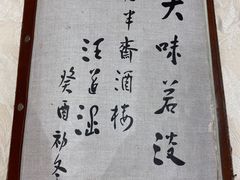 大味若淡
半斋酒楼
汪道涵
癸酉初冬